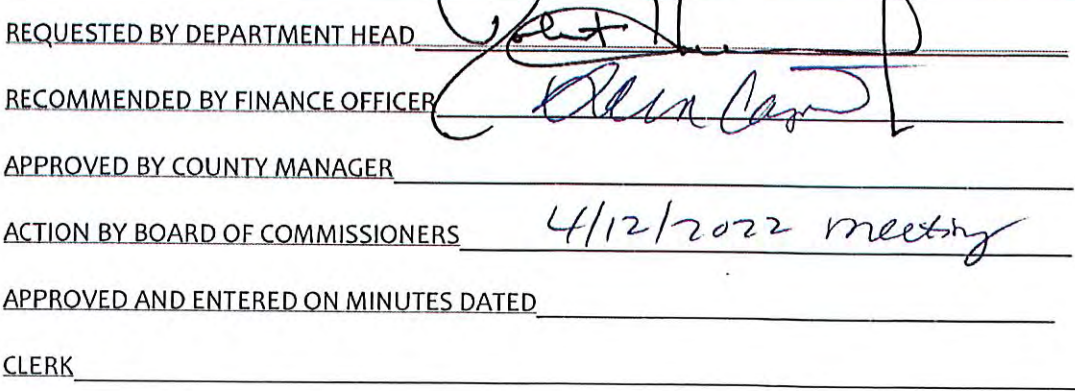 REQUESTED BY DEPARTMENT HEAD
RECOMMENDED BY FINANCE OFFICER
APPROVED BY COUNTY MANAGER
ACTION BY BOARD OF COMMISSIONERS 4/12/2022 meeting
APPROVED AND ENTERED ON MINUTES DATED
CLERK